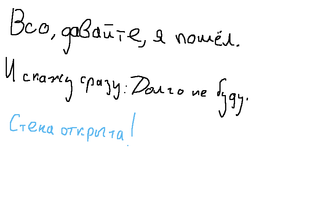 Всо, давайте, я пошёл.
И скажу сразу: Долго не буду.
Стена открыта!